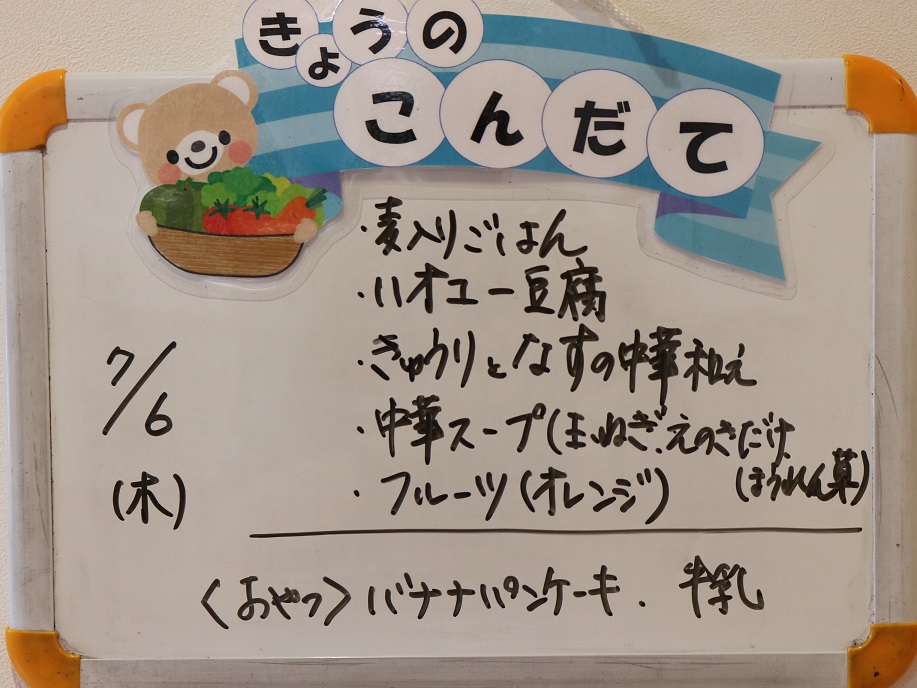 きょうの
こんだて
・麦入りごはん
・ハオユー豆腐
・きゅうりとなすの中華和え
・中華スープ(玉ねぎ、えのきだけ、
(ほうれん草)
・フルーツ(オレンジ)
7/6
(木)
<おやつ>バナナパンケーキ、牛乳